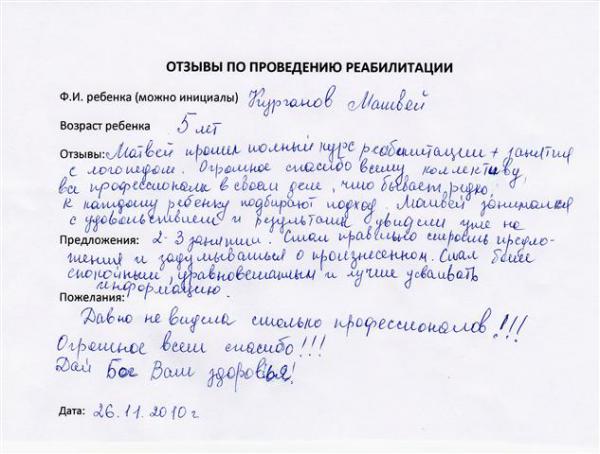 ОТЗЫВЫ ПО ПРОВЕДЕНИЮ РЕАБИЛИТАЦИИ
Ф.И. ребенка (можно инициалы) Курганов Матвей
Возраст ребенка 5 лет
Отзывы: Матвей прошел полный курс реабилитации + занятия
с логопедом. Огромное спасибо всему коллективу,
все профессионалы в своем деле, что бывает редко,
к каждому ребенку подбирают подход. Матвей занимался
с удовольствием и результаты увидели уже на
Предложения: 2-3 занятии. Стал правильно строить предло-
жения и задумываться о произнесенном. Стал более
спокойным, уравновешанным и лучше усваивать
информацию.
Пожелания:
Давно не видела столько профессионалов!!!
Огромное всем спасибо!!!
Дай Бог Вам здоровья!
Дата: 26.11.2010г